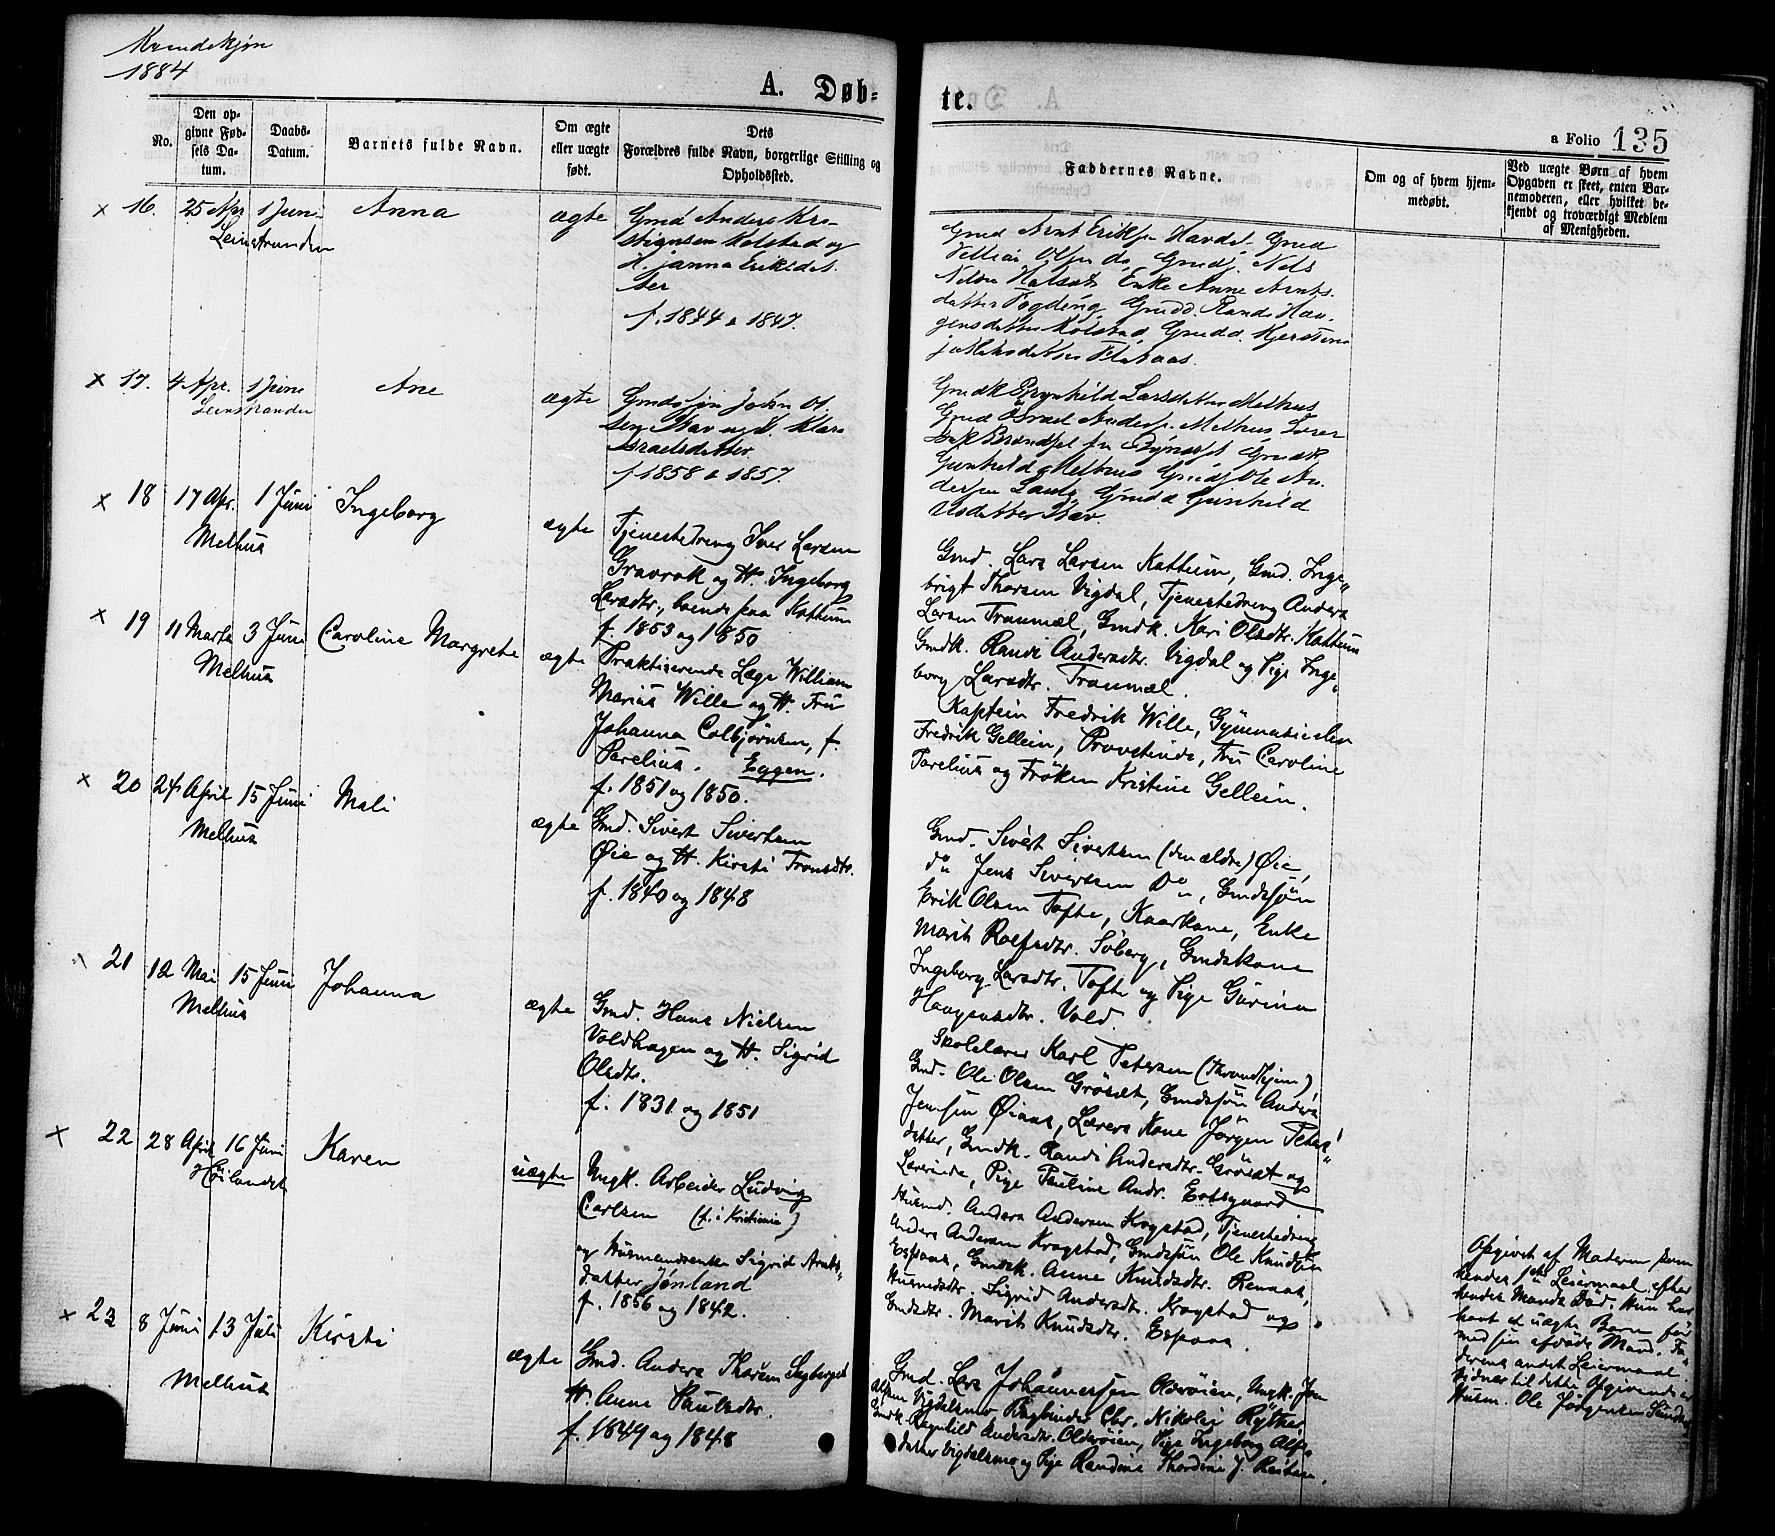 Kvindekjøn
1884
A. Døb-
te.
a Folio 135
No.
Den op-
givne Fød-
sels Da-
tum.
Daabs-
Datum.
Barnets fulde Navn.
Om ægte
eller uægte
født.
Dets
Forældres fulde Navn, borgerlige Stilling og
Opholdssted.
Faddernes Navne.
Om og af hvem hjem-
medøbt.
Ved uægte Børn af hvem
Opgaven er skeet, enten Bar-
nemoderen, eller hvilket be-
kjendt og troværdigt Medlem
af Menigheden.
x 16. 25 Apr 1 Juni Anna ægte
Leinstranden
Gmd Anders Kri-
stiansen Kolstad og
H. Janna Eriksdat-
ter
f. 1844 & 1847.
Gmd Arnt Eriks. Havdal, Gmd
Olsen do, Gmdsj. Nels
Nelsen Enke Anne Arnts-
datter Gmdd. Randi Haa-
gensdatter Kolstad, Gmdd. Kjersten
Flataas.
x 17. 4 Apr. 1 Juni Ane ægte
Leinstranden
Gmdssøn John Ol-
sen Stav og H.
Israelsdatter
f 1858 & 1857.
Gmdk Brynhild Larsdatter Melhus
Gmd Israel Anders. Melhus
Gmdk
Gunhild Melhus Gmdsj Ole An-
dersen Gmdd Gunhild
Olsdatter Stav.
x 18 17 Apr. 1 Juni Ingeborg ægte
Melhus
Tjenestedreng Iver Larsen
Gravrok og H. Ingeborg
Larsdtr., boende paa Kathum
f. 1853 og 1850
Gmd. Lars Larsen Kathum, Gmd. Inge-
brigt Thorsen Vigdal, Tjenestedreng Anders
Larsen Tranmæl, Gmdk. Kari Olsdtr. Kathum
Gmdk. Randi Andersdtr. Vigdal og Pige Inge-
borg Larsdtr. Tranmæl.
x 19 11 Marts 3 Juni Caroline Margrete ægte
Melhus
Praktiserende Læge William
Marius Wille og H. Fru
Johanna Colbjørnsen, f.
Parelius. Eggen.
f. 1851 og 1850.
Kaptein Fredrik Wille, Gymnasielev
Fredrik Gellein, Provstinde, Fru Caroline
Parelius og Frøken Kristine Gellein.
x 20 24 April 15 Juni Mali ægte
Melhus
Gmd. Sivert Sivertsen
Øie og H. Kirsti Tronsdtr.
f. 1840 og 1848
Gmd. Sivert Sivertsen (den ældre) Øie,
do Jens Sivertsen Do, Gmdssøn
Erik Olsen Tofte, Kaarkone, Enke
Marit Rolfsdtr. Søberg, Gmdskone
Ingeborg Larsdtr. Tofte og Pige Gurina
Haagensdtr. Vold.
21 12 Mai 15 Juni Johanna ægte
Melhus
Gmd. Hans Nielsen
Voldhagen og H. Sigrid
Olsdtr.
f. 1831 og 1851
Skolelærer Karl Petersen (Throndhjem),
Gmd. Ole Olsen Grøsæt, Gmdssøn Anders
Jensen Øiaas, Lærers Kone Jørgen Peters-
datter, Gmdk. Randi Andersdtr. Grøset og
Lærerinde, Pige Pauline Andr. Estsgaard
x 22 28 April 16 Juni Karen uægte
Høilandet
Ungk. Arbeider Ludvig
Carlsen (f. i Kristiania)
og Husmandsenke Sigrid Arnts-
datter Jønland
f. 1856 og 1842.
Husmd. Anders Andersen Krogstad, Tjenestedreng
Anders Andersen Krogstad, Gmdssøn Ole Knudsen
Espaas, Gmdk. Anne Knudsdtr. Renaas,
Husmdsdtr. Sigrid Andersdtr. Krogstad og
Gmdsdtr. Marit Knudsdtr. Espaas.
Opgivet af Moderen som
hendes 1ste Leiermaal efter
hendes Mands Død. Hun har
havt et uægte Barn før
med sin afdøde Mand. Fa-
derens andet Leiermaal.
Vidner til dette Opgivende er
Husm. Ole Jørgensen
x 23 8 Juni 13 Juli Kirsti ægte
Melhus
Gmd. Anders Thorsen
H. Anne Paulsdtr.
f. 1849 og 1848
Gmd. Lars Johannessen Olderøien, Ungk. Jon
Vigdalsmo, Bogbinder Chr. Nikolai Ryther,
Gmdk. Ragnhild Andersdtr. Olderøien, Pige Ingeborg
datter Vigdalsmo og Pige Randine Thordine J.